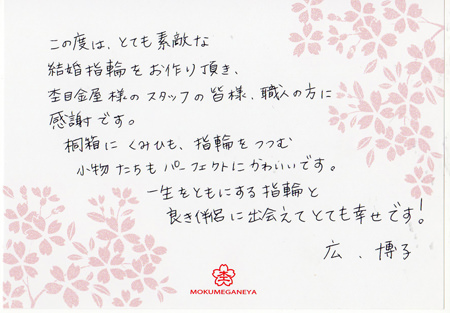 この度は、とても素敵な
結婚指輪をお作り頂き、
杢目金屋様のスタッフの皆様、職人の方に
感謝です。
桐箱にくみひも、指輪をつつむ
小物たちもパーフェクトにかわいいです。
一生をともにする指輪と
良き伴侶に出会えてとても幸せです!
広、博子
MOKUMEGANEYA